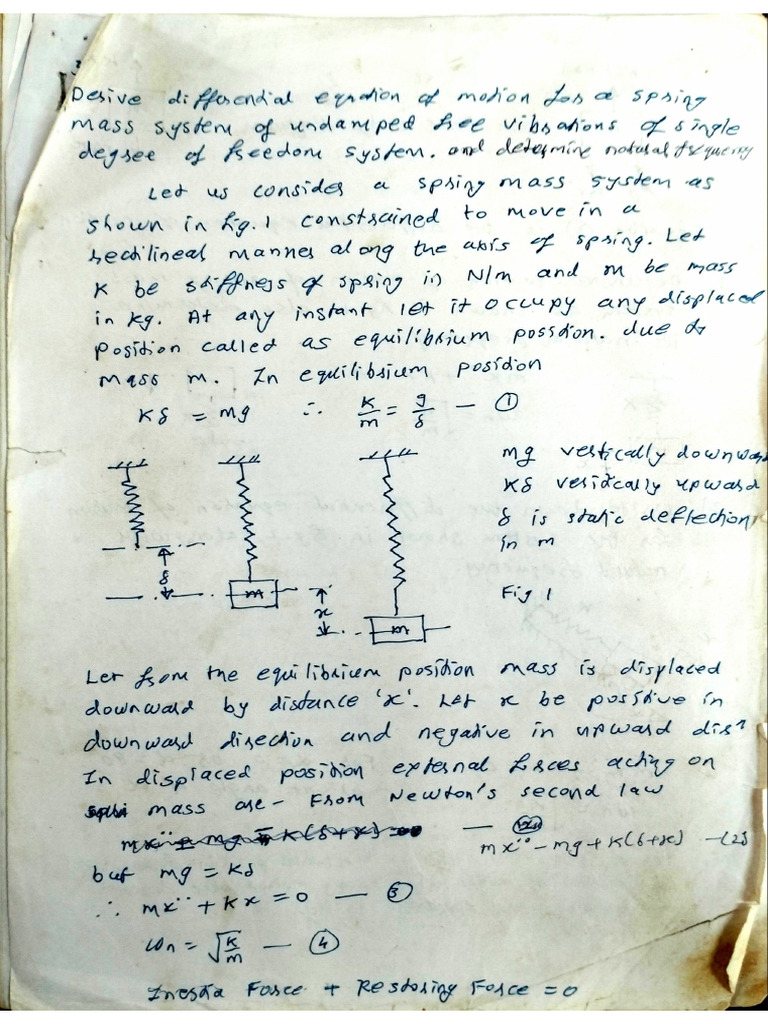 Derive differential equation of motion for a spring
mass system of undamped free vibrations of single
degree of freedom system. and determine natural frequency
Let us consider a spring mass system as
shown in fig. 1 constrained to move in a
rectilinear manner along the axis of spring. Let
K be stiffness of spring in N/m and m be mass
in kg. At any instant let it occupy any displaced
position called as equilibrium position. due to
mass m. In equilibrium position
Kδ = mg ∴ K/m = g/δ — ①
mg vertically downward
Kδ vertically upward
δ is static deflection
in m
δ
m
x
m
Fig 1
Let from the equilibrium position mass is displaced
downward by distance 'x'. Let x be positive in
downward direction and negative in upward dirⁿ
In displaced position external forces acting on
mass are - From Newton's second law
mẍ - mg + k(δ+x) — (2)
but mg = kδ
∴ mẍ + kx = 0 — ③
ωn = √K/m — ④
Inertia Force + Restoring Force = 0